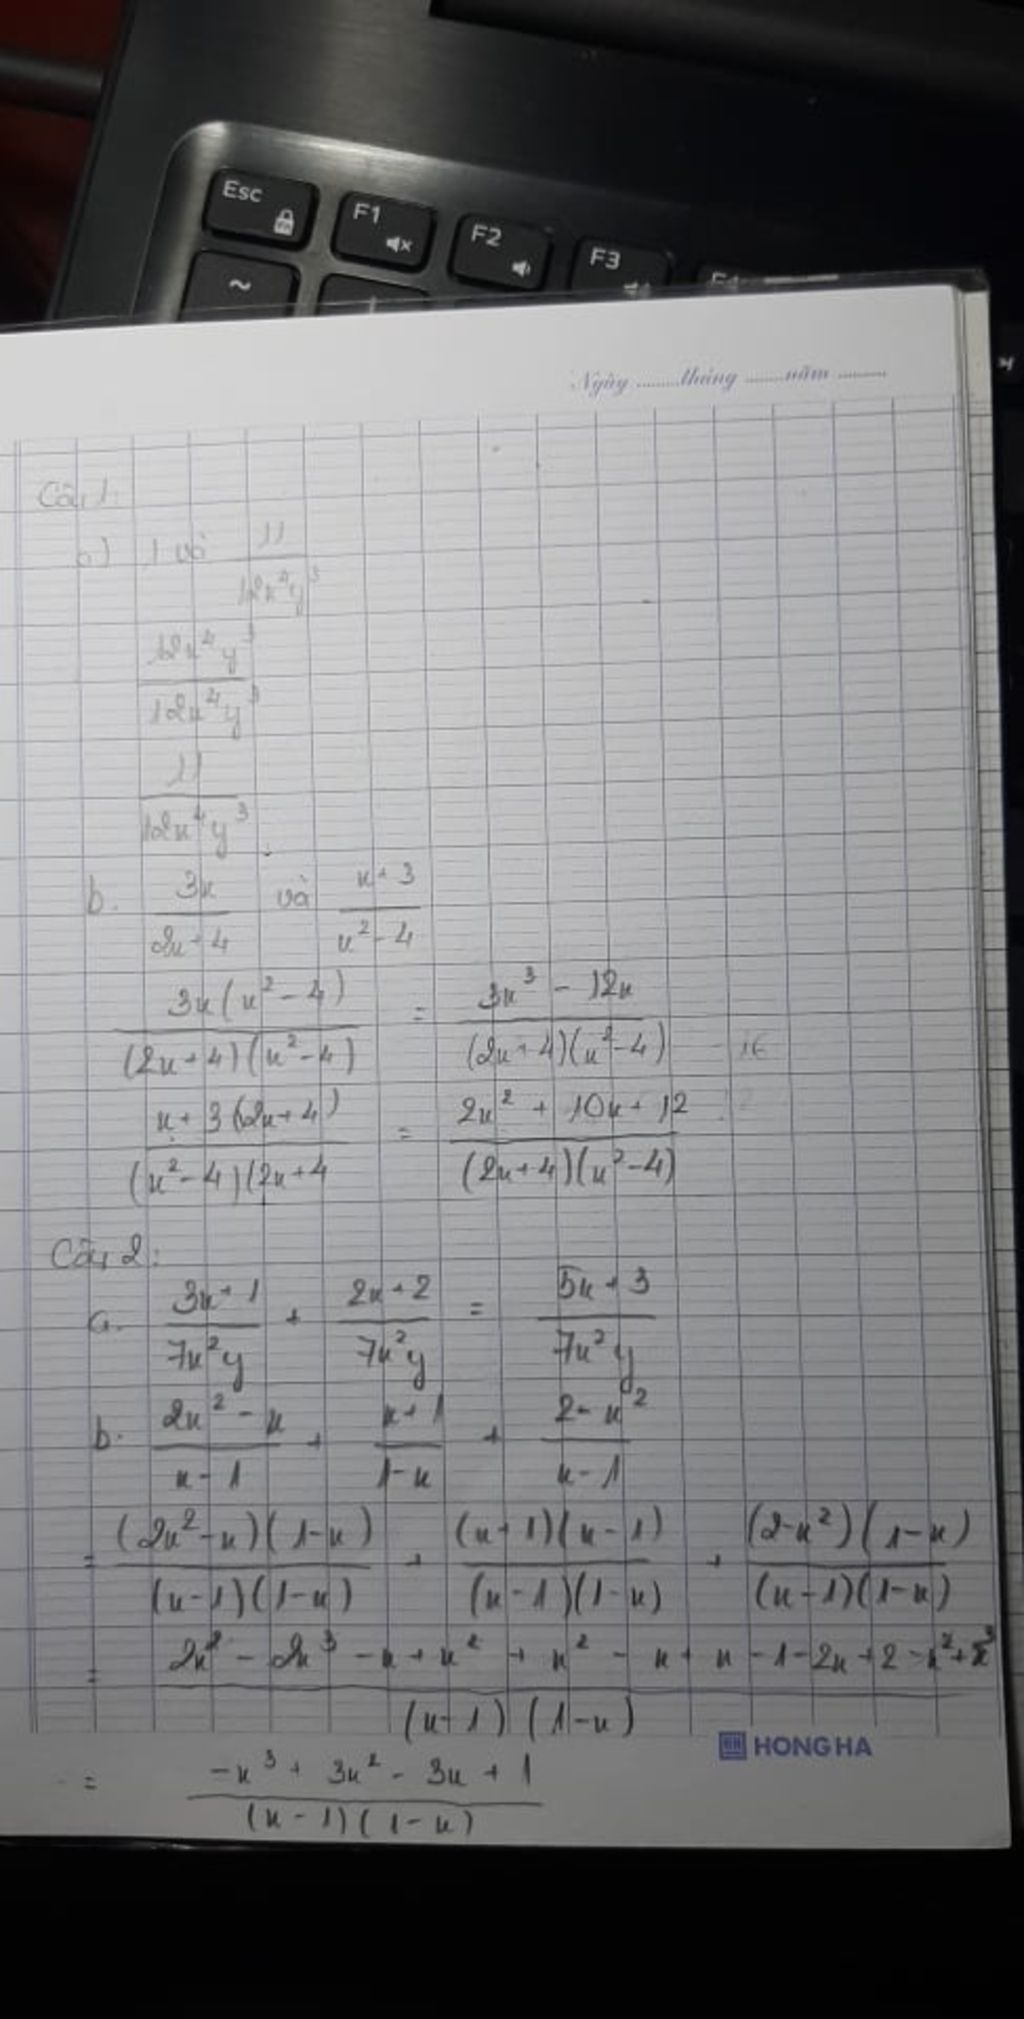 Esc F1 F2 F3
~
Ngày ........tháng ........năm ..........
Câu 1:
a) 1 và 11/12x⁴y³
12x⁴y³/12x⁴y³
11/12x⁴y³
b. 3x/2x+4 và x+3/x²-4
3x(x²-4)/(2x+4)(x²-4) = 3x³ - 12x/(2x+4)(x²-4)
x+3(2x+4)/(x²-4)(2x+4 = 2x² + 10x + 12/(2x+4)(x²-4)
Câu 2:
a. 3x+1/7x²y + 2x+2/7x²y = 5x+3/7x²y
b. 2x²-x/x-1 + x+1/1-x + 2-x²/x-1
= (2x²-x)(1-x)/(x-1)(1-x) + (x+1)(x-1)/(x-1)(1-x) + (2-x²)(1-x)/(x-1)(1-x)
= 2x² - 2x³ - x + x² + x² - x + x - 1 - 2x + 2 - x² + x³/(x-1)(1-x)
HONG HA
= -x³ + 3x² - 3x + 1/(x-1)(1-x)